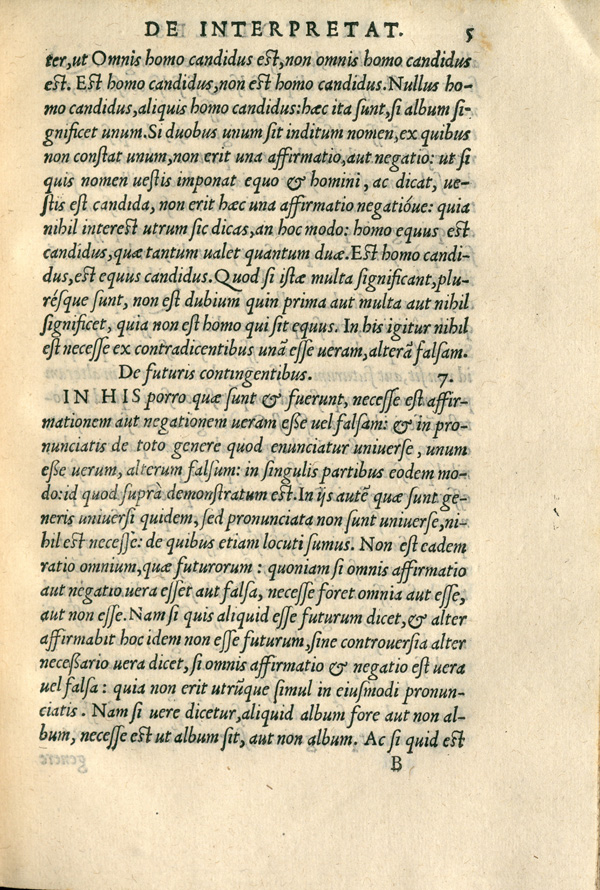 DE INTERPRETAT. 5
ter, ut Omnis homo candidus est, non omnis homo candidus
est. Est homo candidus, non est homo candidus. Nullus ho-
mo candidus, aliquis homo candidus: hæc ita sunt, si album si-
gnificet unum. Si duobus unum sit inditum nomen, ex quibus
non constat unum, non erit una affirmatio, aut negatio: ut si
quis nomen uestis imponat equo & homini, ac dicat, ue-
stis est candida, non erit hæc una affirmatio negatióue: quia
nihil interest utrum sic dicas, an hoc modo: homo equus est
candidus, quæ tantum ualet quantum duæ. Est homo candi-
dus, est equus candidus. Quod si istæ multa significant, plu-
résque sunt, non est dubium quin prima aut multa aut nihil
significet, quia non est homo qui sit equus. In his igitur nihil
est necesse ex contradicentibus unã esse ueram, alterã falsam.
De futuris contingentibus. 7.
IN HIS porro quæ sunt & fuerunt, necesse est affir-
mationem aut negationem ueram esse uel falsam: & in pro-
nunciatis de toto genere quod enunciatur uniuerse, unum
esse uerum, alterum falsum: in singulis partibus eodem mo-
do: id quod suprà demonstratum est. In ijs autẽ quæ sunt ge-
neris uniuersi quidem, sed pronunciata non sunt uniuerse, ni-
hil est necesse: de quibus etiam locuti sumus. Non est eadem
ratio omnium, quæ futurorum: quoniam si omnis affirmatio
aut negatio uera esset aut falsa, necesse foret omnia aut esse,
aut non esse. Nam si quis aliquid esse futurum dicet, & alter
affirmabit hoc idem non esse futurum, sine controuersia alter
necessario uera dicet, si omnis affirmatio & negatio est uera
uel falsa: quia non erit utrũque simul in eiusmodi pronun-
ciatis. Nam si uere dicetur, aliquid album fore aut non al-
bum, necesse est ut album sit, aut non album. Ac si quid est
B